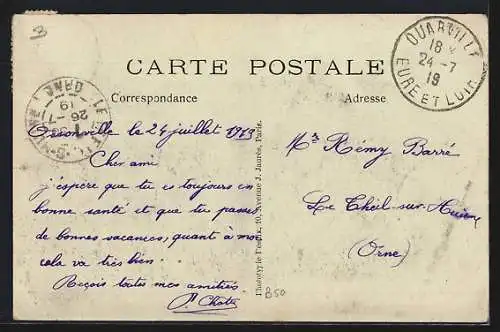 3
OUARVILLE
18
24-7
19
EURE ET LOIR
CARTE POSTALE
Correspondance
Adresse
26-7
19
ORNE
le 24 juillet 1919
Cher ami
j'espère que tu es toujours en
bonne santé et que tu passes
de bonnes vacances, quant à moi
cela va très bien.
Reçois toutes mes amitiés.
Mr Rémy Barré
Le Theil-sur-Huisne
(Orne)
10, Avenue J. Jaurès, Paris.
B50